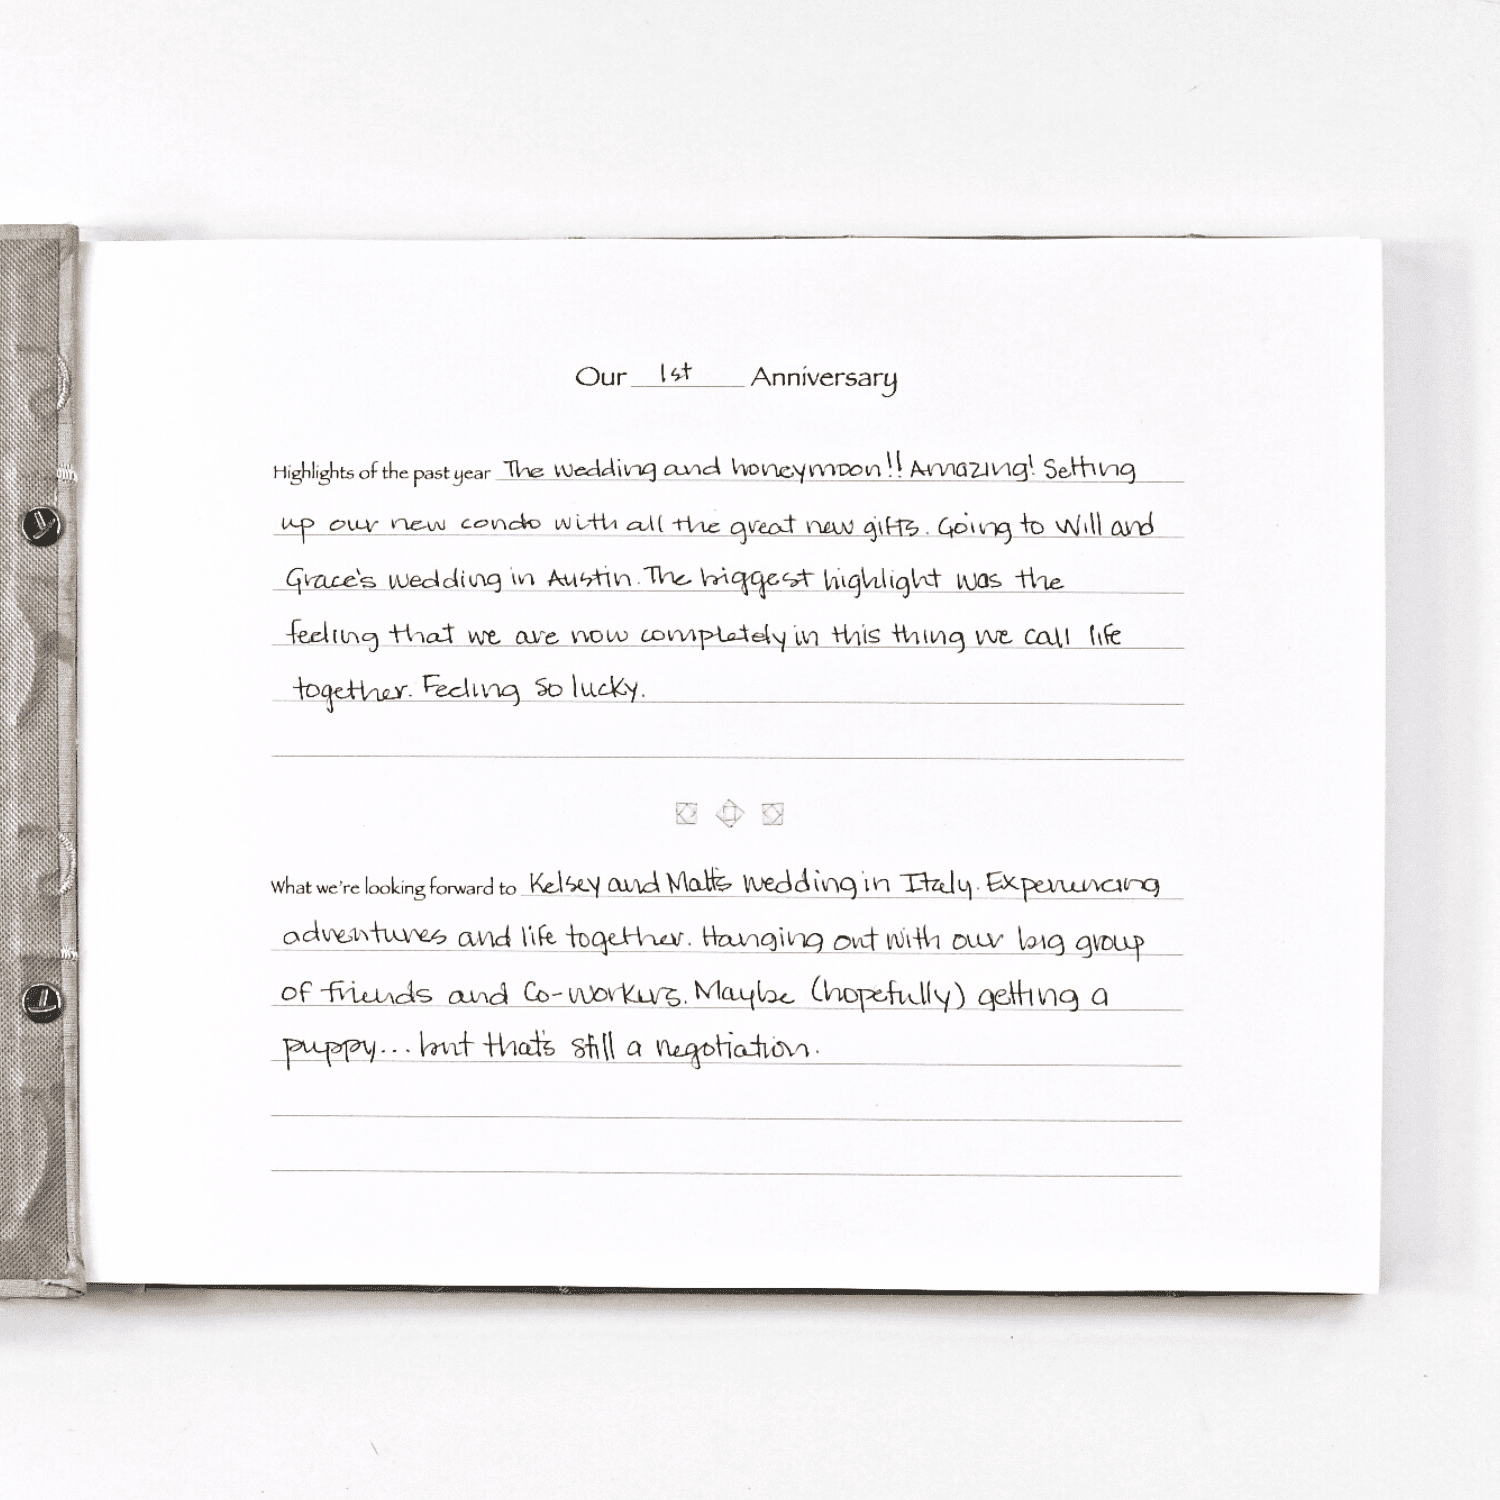 Our 1st Anniversary
Highlights of the past year The wedding and honeymoon!! Amazing! Setting
up our new condo with all the great new gifts. Going to Will and
Grace's wedding in Austin. The biggest highlight was the
feeling that we are now completely in this thing we call life
together. Feeling so lucky.
What we're looking forward to Kelsey and Matt's wedding in Italy. Experiencing
adventures and life together. Hanging out with our big group
of friends and Co-workers. Maybe (hopefully) getting a
puppy... but that's still a negotiation.